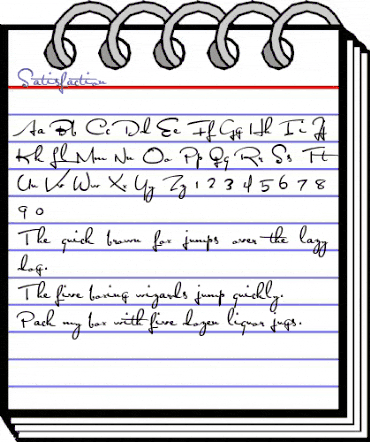 Satisfaction
Aa Bb Cc Dd Ee Ff Gg Hh Ii Jj
Kk Ll Mm Nn Oo Pp Qq Rr Ss Tt
Uu Vv Ww Xx Yy Zz 1 2 3 4 5 6 7 8
9 0
The quick brown fox jumps over the lazy
dog.
The five boxing wizards jump quickly.
Pack my box with five dozen liquor jugs.